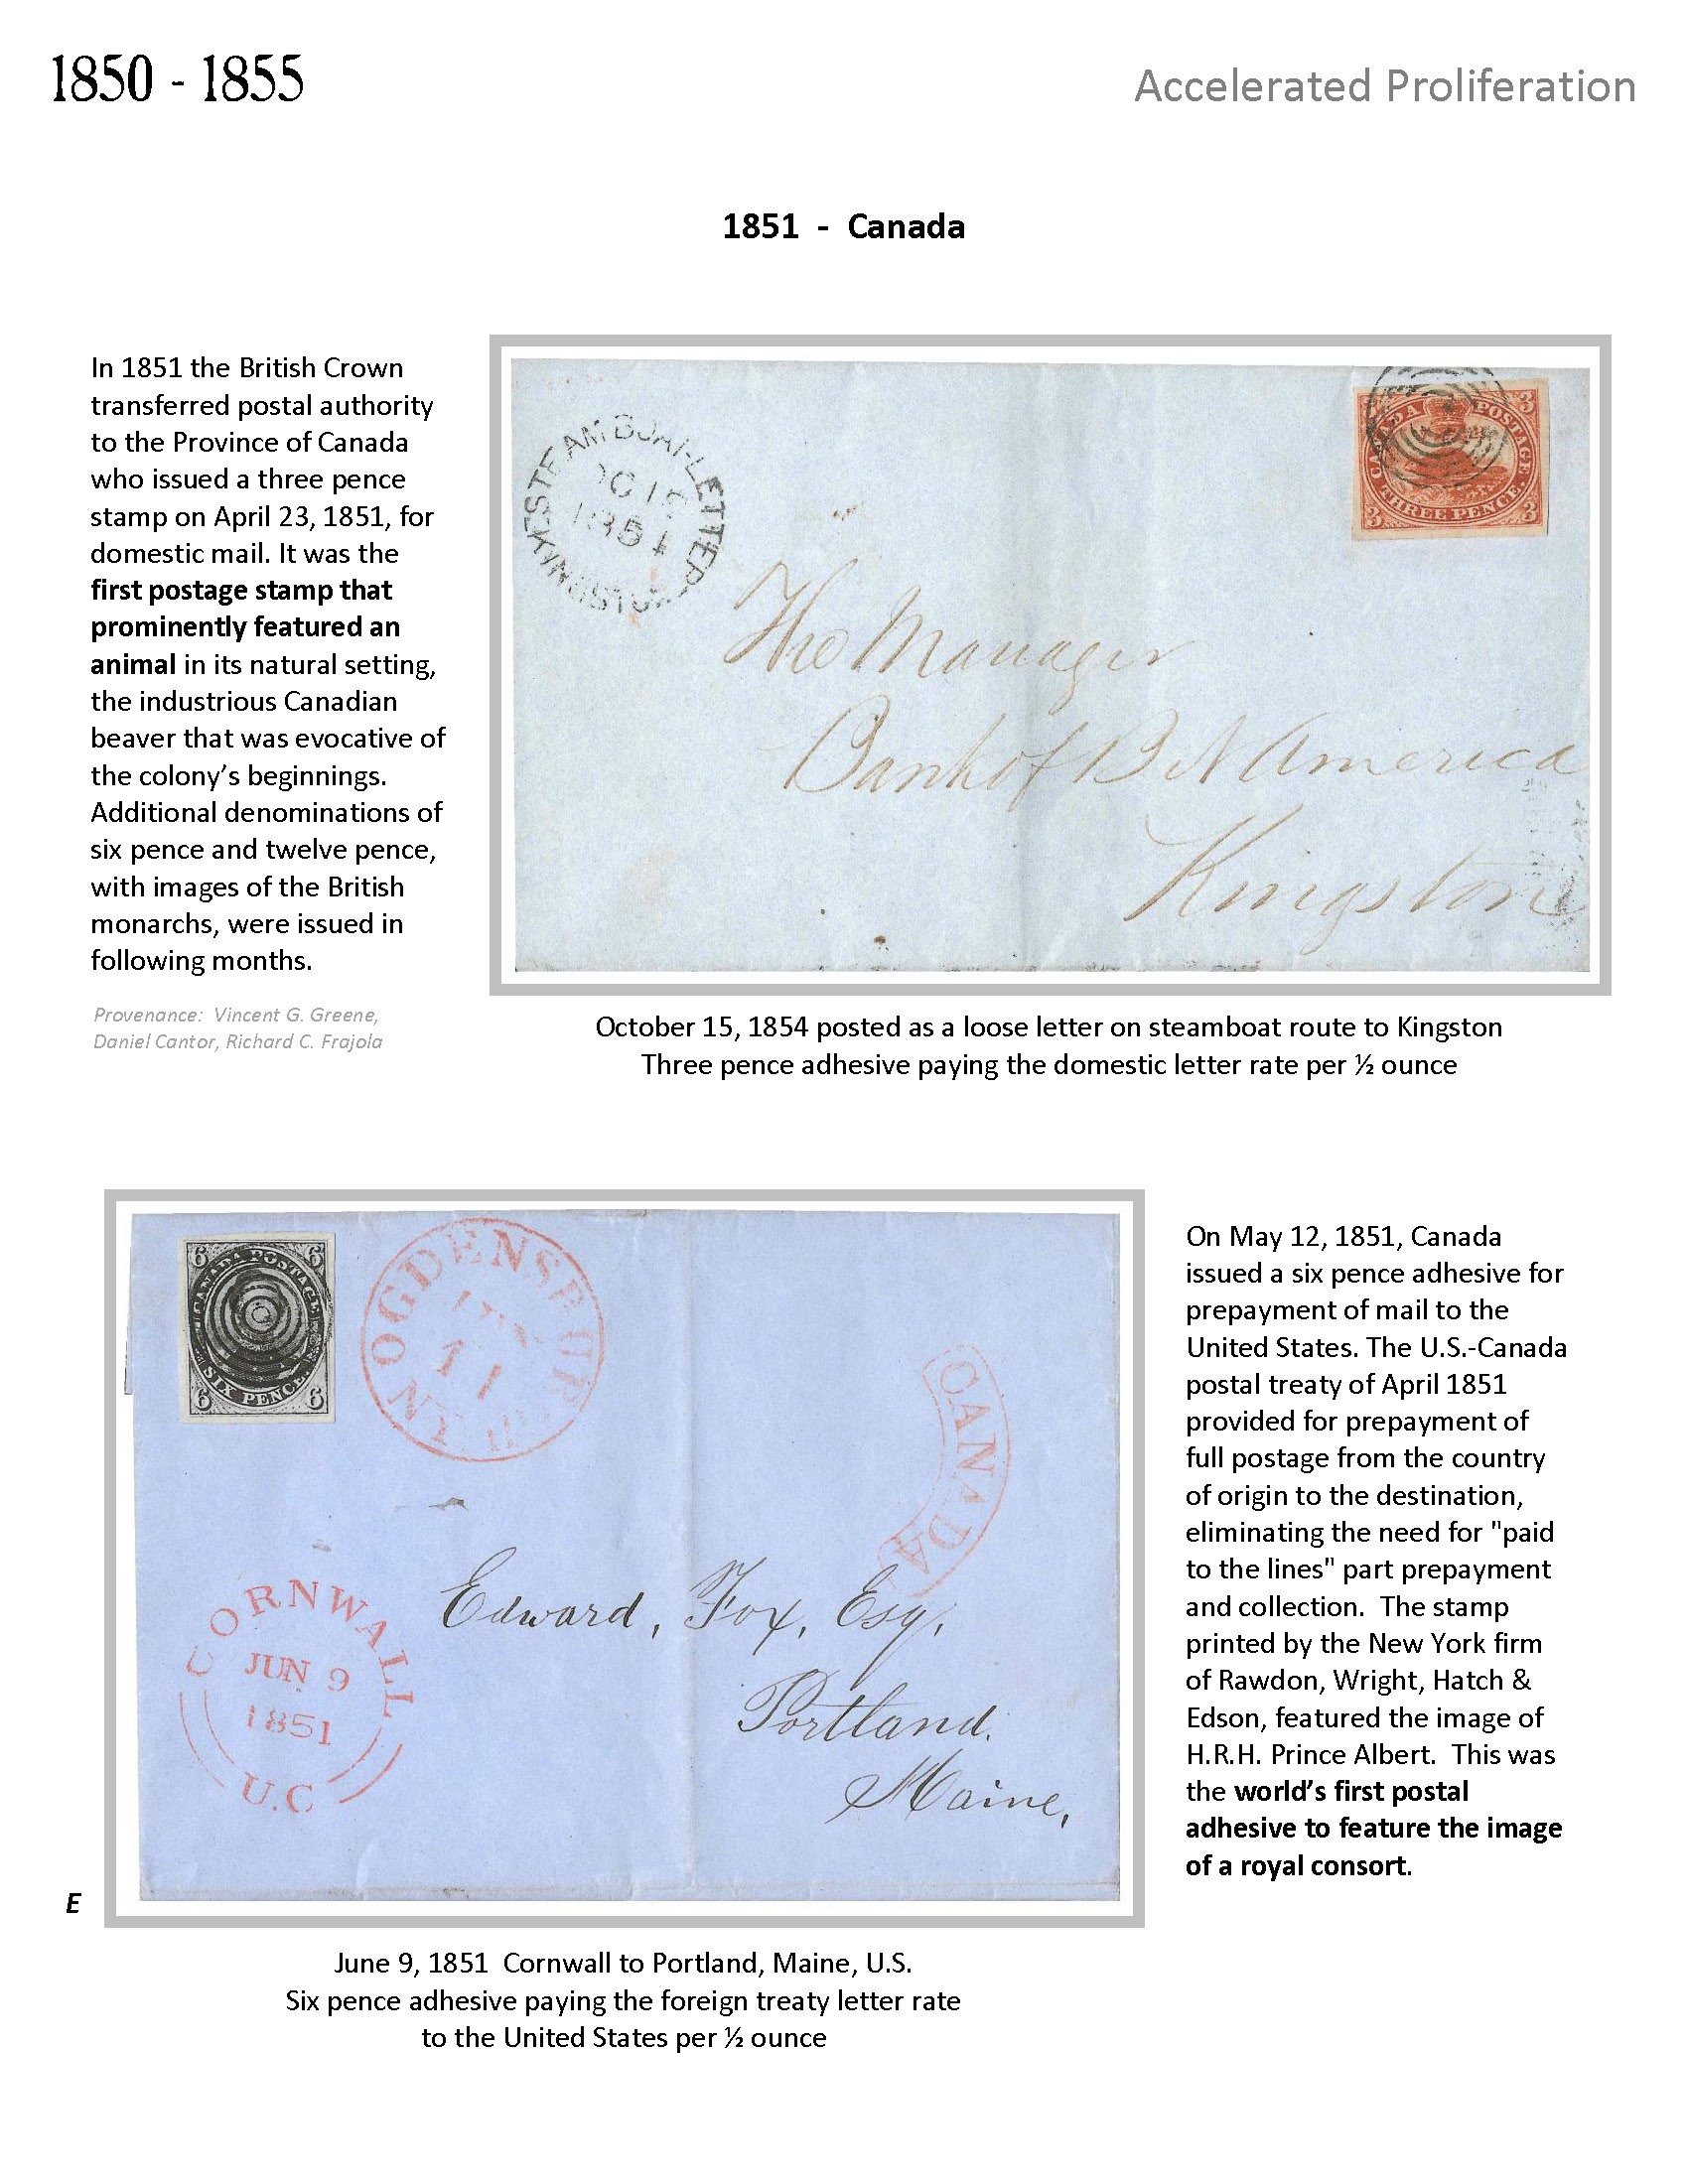 1850 - 1855
Accelerated Proliferation
1851 - Canada
In 1851 the British Crown
transferred postal authority
to the Province of Canada
who issued a three pence
stamp on April 23, 1851, for
domestic mail. It was the
first postage stamp that
prominently featured an
animal in its natural setting,
the industrious Canadian
beaver that was evocative of
the colony’s beginnings.
Additional denominations of
six pence and twelve pence,
with images of the British
monarchs, were issued in
following months.
Provenance: Vincent G. Greene,
Daniel Cantor, Richard C. Frajola
STEAMBOAT-LETTER
1854
KINGSTON
CANADA POSTAGE
3
THREE PENCE.
3 3
The Manager
Bank of B N America
Kingston
October 15, 1854 posted as a loose letter on steamboat route to Kingston
Three pence adhesive paying the domestic letter rate per ½ ounce
6 6
CANADA POSTAGE
SIX PENCE
6 6
OGDENSBURGH
11
N.Y.
CANADA
CORNWALL
JUN 9
1851
U.C
Edward, Fox, Esq,
Portland.
Maine,
E
June 9, 1851 Cornwall to Portland, Maine, U.S.
Six pence adhesive paying the foreign treaty letter rate
to the United States per ½ ounce
On May 12, 1851, Canada
issued a six pence adhesive for
prepayment of mail to the
United States. The U.S.-Canada
postal treaty of April 1851
provided for prepayment of
full postage from the country
of origin to the destination,
eliminating the need for "paid
to the lines" part prepayment
and collection. The stamp
printed by the New York firm
of Rawdon, Wright, Hatch &
Edson, featured the image of
H.R.H. Prince Albert. This was
the world’s first postal
adhesive to feature the image
of a royal consort.